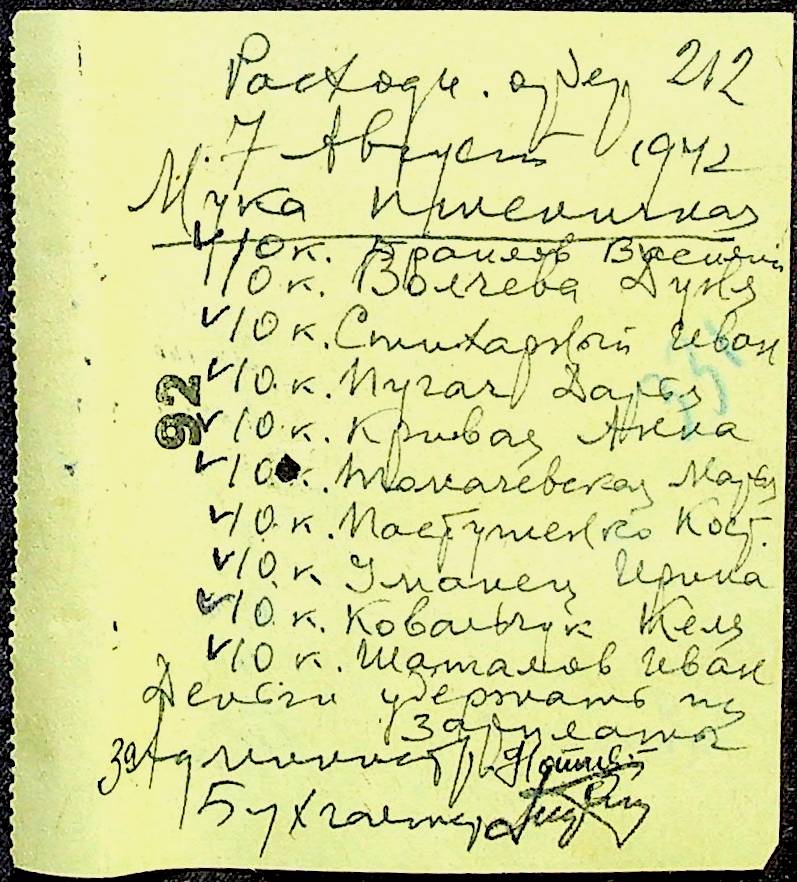 Расходн. ордер 212
7 Август 1942
Мука пшеничная
10 к. Василий
10 к. Волчева Дуня
10 к. Стихарный Иван
92
10 к. Пугач Дарья
10 к. Кривая Анна
10 к. Томачевская Мария
10 к. Пастушенко Кост.
10 к. Уманец Ирина
10 к. Ковальчук
10 к. Шаталов Иван
Деньги удержать из
зарплаты
За Администр.
Бухгалтер